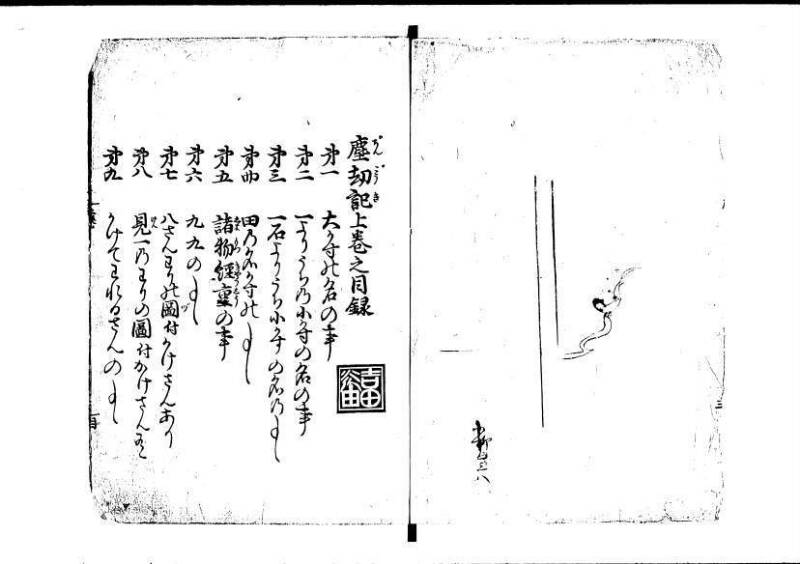 塵劫記上巻之目録
第一 大かずの名の事
第二 一よりうちの小かずの名の事
第三 一石よりうち小かずの名の事
第四 田の名かずの事
第五 諸物軽重の事
第六 九九の事
第七 八さんわりの図付かけさんあり
第八 見一のわりの圖付かけさん
第九 かけてわれるさんの事
吉田